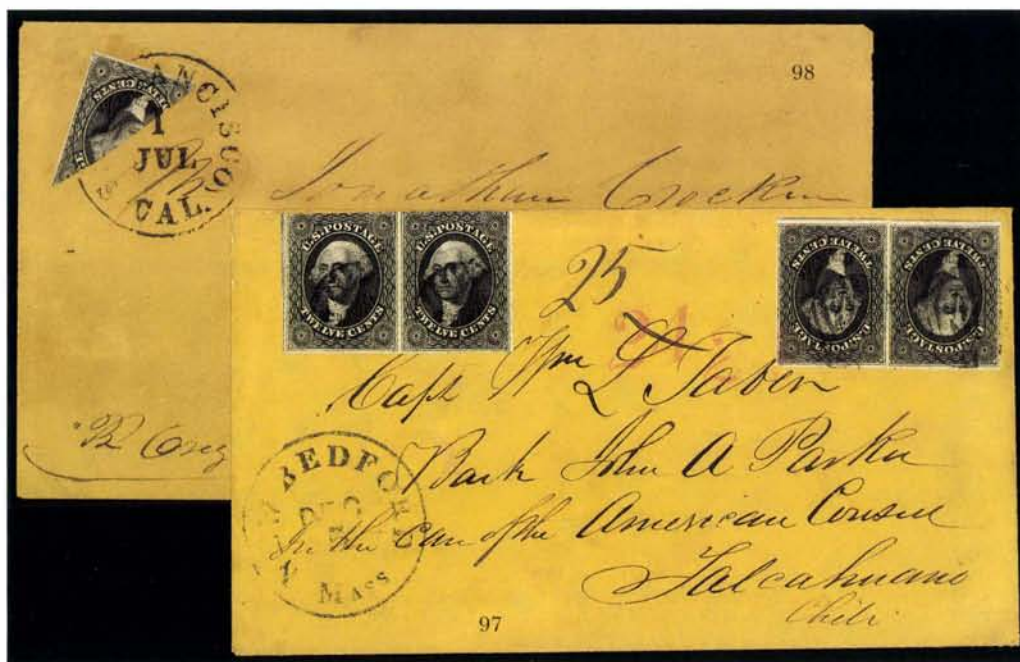 98
ANCISCO
TWELVE CENTS
1
JUL
CAL.
Jonathan Crocker
U.S. POSTAGE
TWELVE CENTS
U.S. POSTAGE
TWELVE CENTS
U.S. POSTAGE
TWELVE CENTS
U.S. POSTAGE
TWELVE CENTS
25
24
Capt Wm L Taber
Bark John A Parker
In the Care of the American Consul
Talcahuano
Chili
BEDFO
DEC
MASS
97